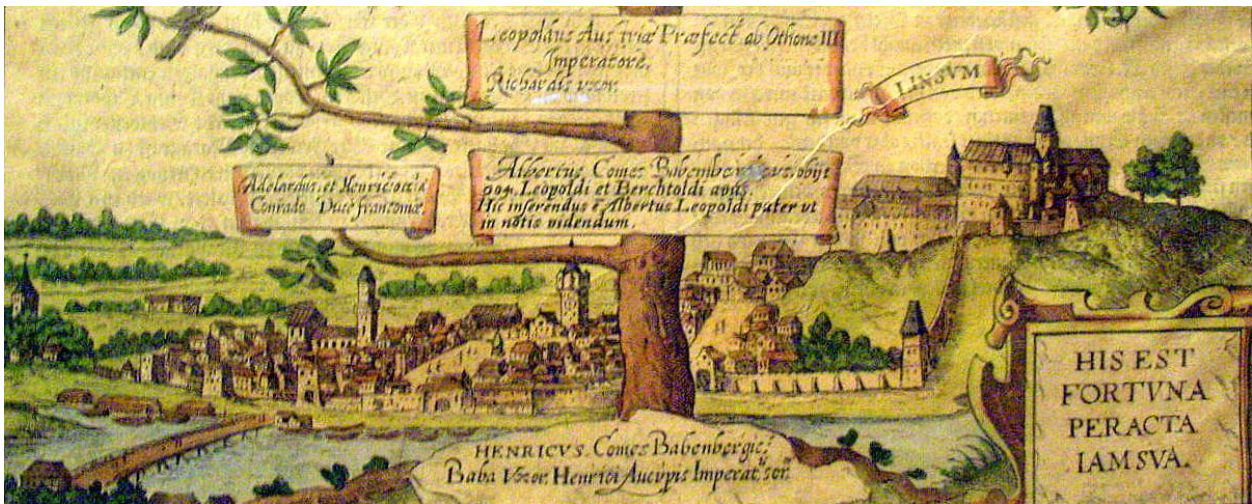 Leopoldus Austriæ Præfect ab Othone III
Imperatore,
Richardis uxor.
LINSVM
Adelardus et Henric9
Conrado Duce franconiæ.
Albertus Comes obijt
904. Leopoldi et Berchtoldi avus.
Hic inserendus ē Albertus Leopoldi pater ut
in notis videndum.
HENRICVS Comes
Baba Vxor Henrici Aucupis
HIS EST
FORTVNA
PERACTA
IAM SVA.